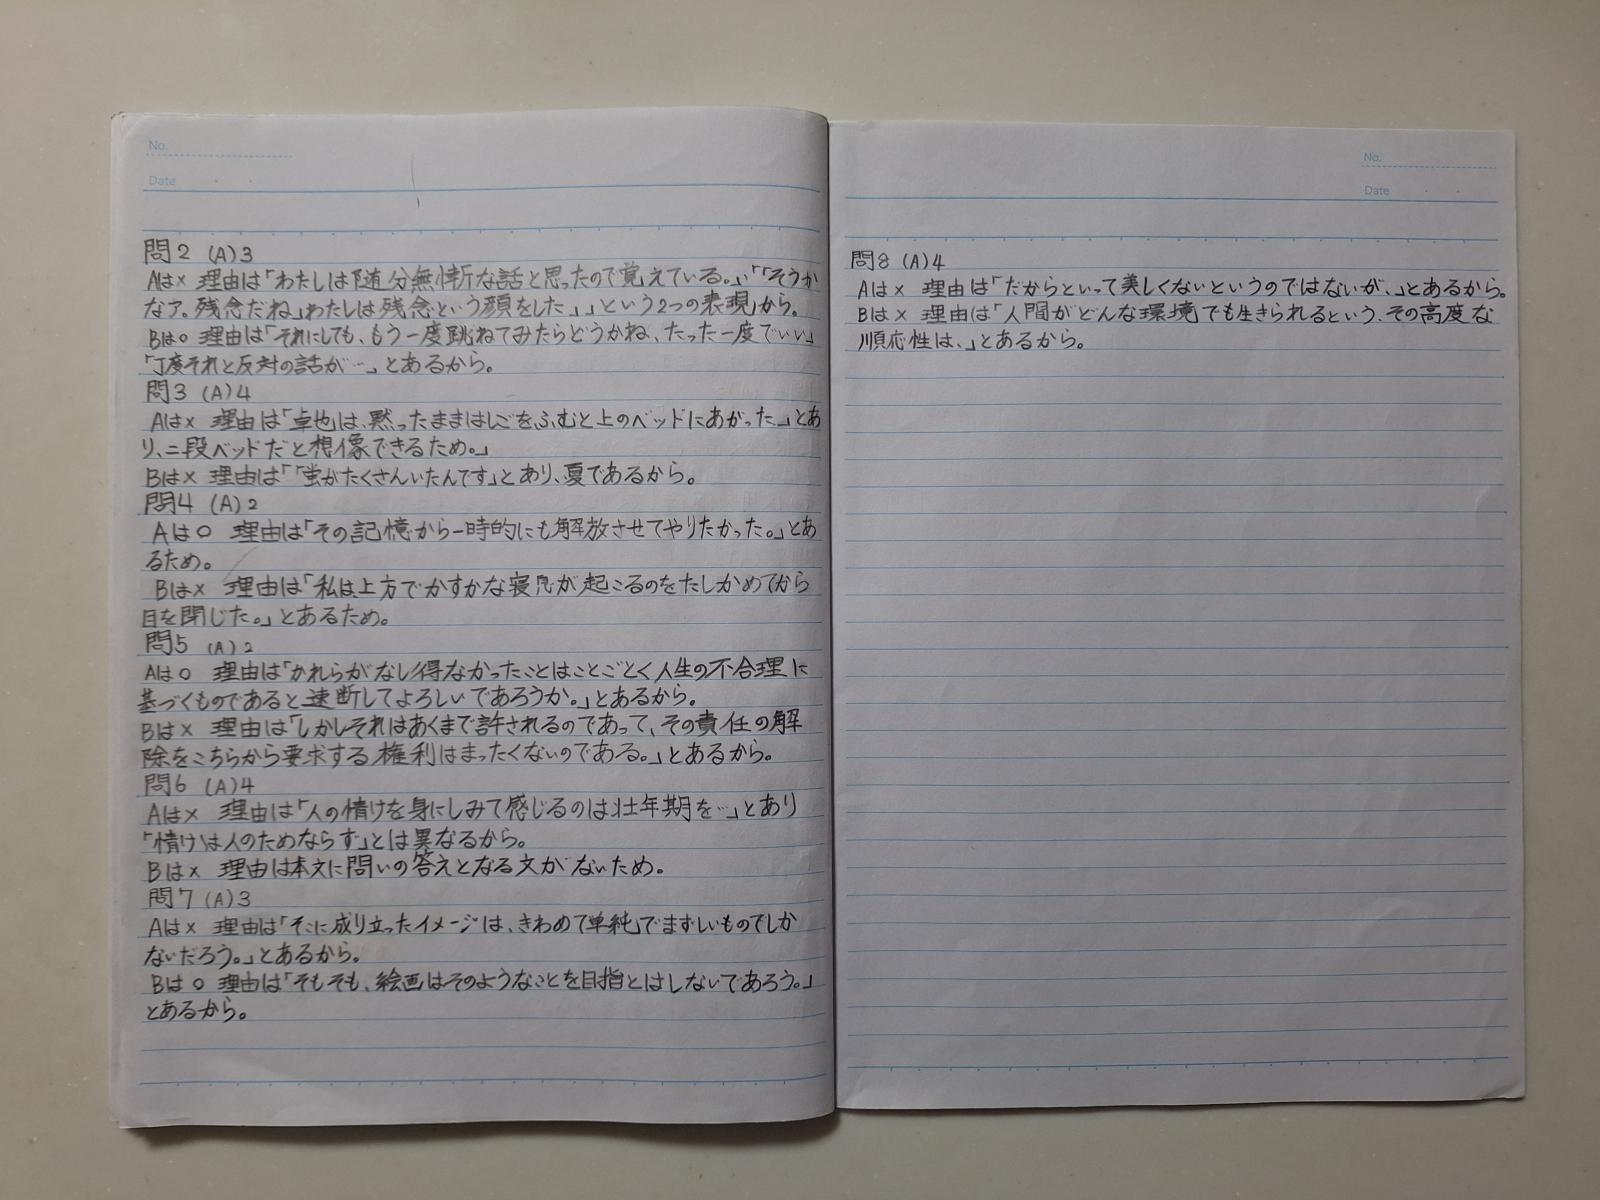 No.
Date
問2 (A)3
Aは× 理由は「わたしは随分無慚な話と思ったので覚えている。」、「「そうか
なア。残念だね」わたしは残念という顔をした」」という2つの表現」から。
Bは○ 理由は「それにしても、もう一度跳ねてみたらどうかね、たった一度でいい」
「丁度それと反対の話が…」とあるから。
問3 (A)4
Aは× 理由は「卓也は、黙ったままはしごをふむと上のベッドにあがった。」とあ
り、二段ベッドだと想像できるため。」
Bは× 理由は「「蛍がたくさんいたんです」とあり、夏であるから。
問4 (A)2
Aは○ 理由は「その記憶から一時的にも解放させてやりたかった。」とあ
るため。
Bは× 理由は「私は上方でかすかな寝息が起こるのをたしかめてから
目を閉じた。」とあるため。
問5 (A)2
Aは○ 理由は「かれらがなし得なかったことはことごとく人生の不合理に
基づくものであると速断してよろしいであろうか。」とあるから。
Bは× 理由は「しかしそれはあくまで許されるのであって、その責任の解
除をこちらから要求する権利はまったくないのである。」とあるから。
問6 (A)4
Aは× 理由は「人の情けを身にしみて感じるのは壮年期を…」とあり
「情けは人のためならず」とは異なるから。
Bは× 理由は本文に問いの答えとなる文がないため。
問7 (A)3
Aは× 理由は「そこに成り立ったイメージは、きわめて単純でまずしいものでしか
ないだろう。」とあるから。
Bは○ 理由は「そもそも、絵画はそのようなことを目指とはしないであろう。」
とあるから。
No.
Date
問8 (A)4
Aは× 理由は「だからといって美しくないというのではないが、」とあるから。
Bは× 理由は「人間がどんな環境でも生きられるという、その高度な
順応性は、」とあるから。